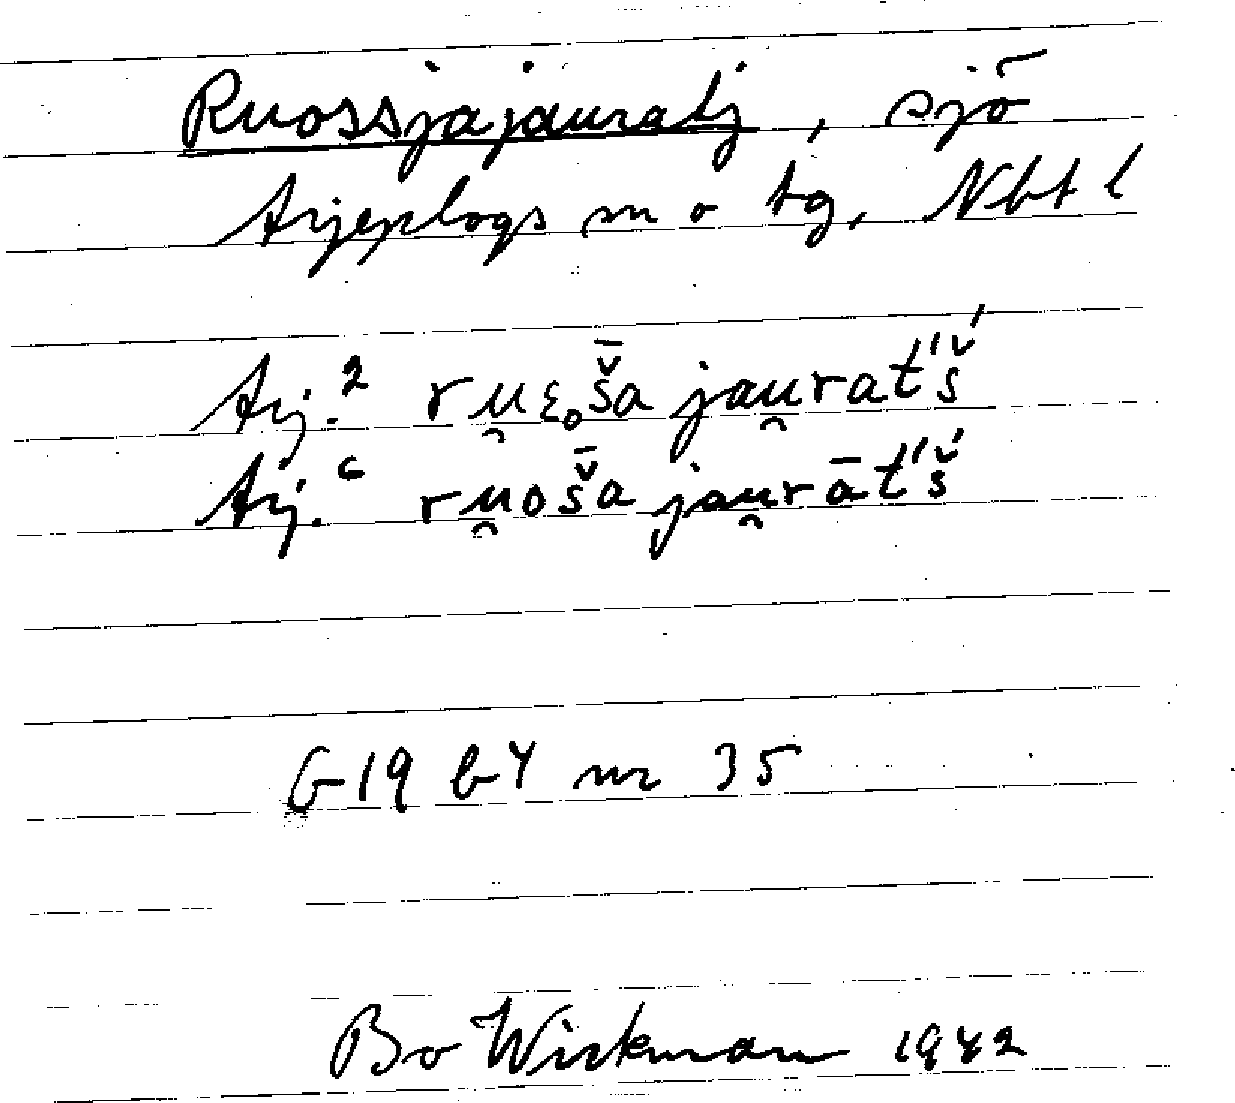 Ruossjajauratj, sjö
Arjeplogs sn o tg, Nbt l
Arj.² ru̯ɛₒš̄a jau̯rat́š́
Arj.⁶ ru̯oš̄a jau̯rāt́š́
G19 b4 nr 35
Bo Wickman 1942